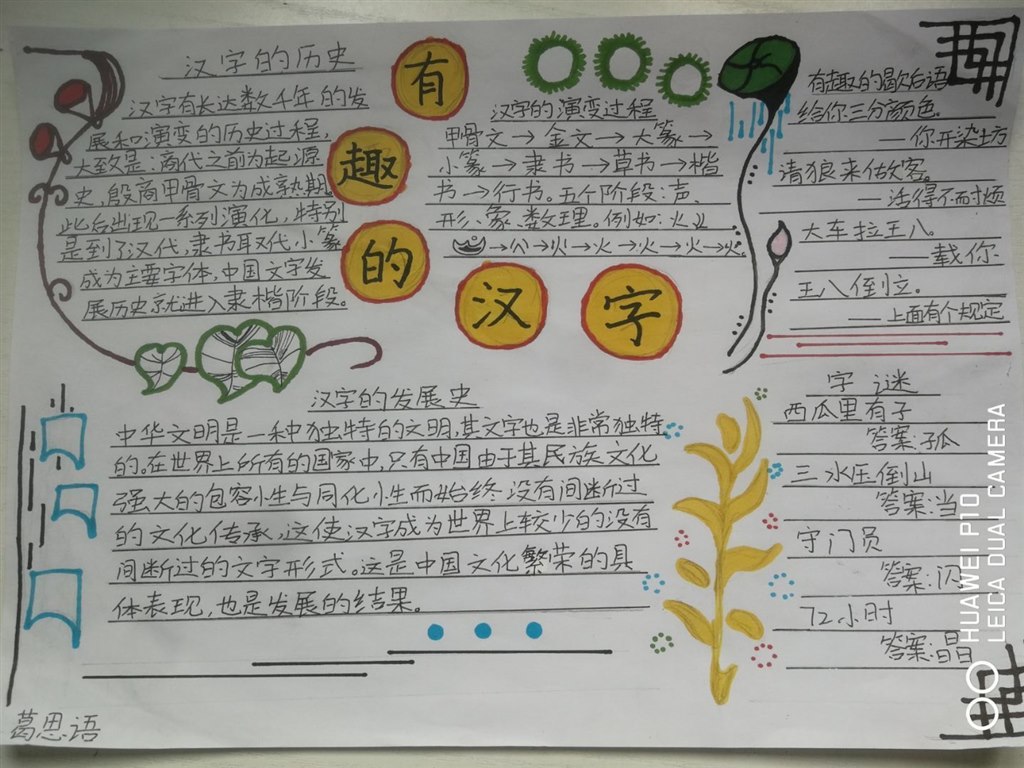 有趣的汉字
汉字的历史
汉字有长达数千年的发
展和演变的历史过程，
大致是：商代之前为起源
史，殷商甲骨文为成熟期，
此后出现一系列演化，特别
是到了汉代，隶书取代小篆
成为主要字体，中国文字发
展历史就进入隶楷阶段。
汉字的演变过程
甲骨文→金文→大篆→
小篆→隶书→草书→楷
书→行书。五个阶段：声、
形、象、数、理。例如：火
火→火→火→火→火
有趣的歇后语
给你三分颜色。
——你开染坊
请狼来做客。
——活得不耐烦
大车拉王八。
——载你
王八倒立。
——上面有个规定
汉字的发展史
中华文明是一种独特的文明，其文字也是非常独特
的。在世界上所有的国家中，只有中国由于其民族文化
强大的包容性与同化性而始终没有间断过
的文化传承。这使汉字成为世界上较少的没有
间断过的文字形式。这是中国文化繁荣的具
体表现，也是发展的结果。
字谜
西瓜里有子
答案：孤
三水压倒山
答案：当
守门员
答案：闪
72小时
答案：晶
葛思语
HUAWEI P10
LEICA DUAL CAMERA